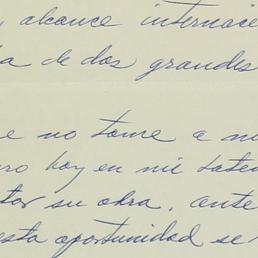 , alcance internac
a de dos grandes
e no tome a m
ro hoy en mi
tar su obra, ante
esta oportunidad se